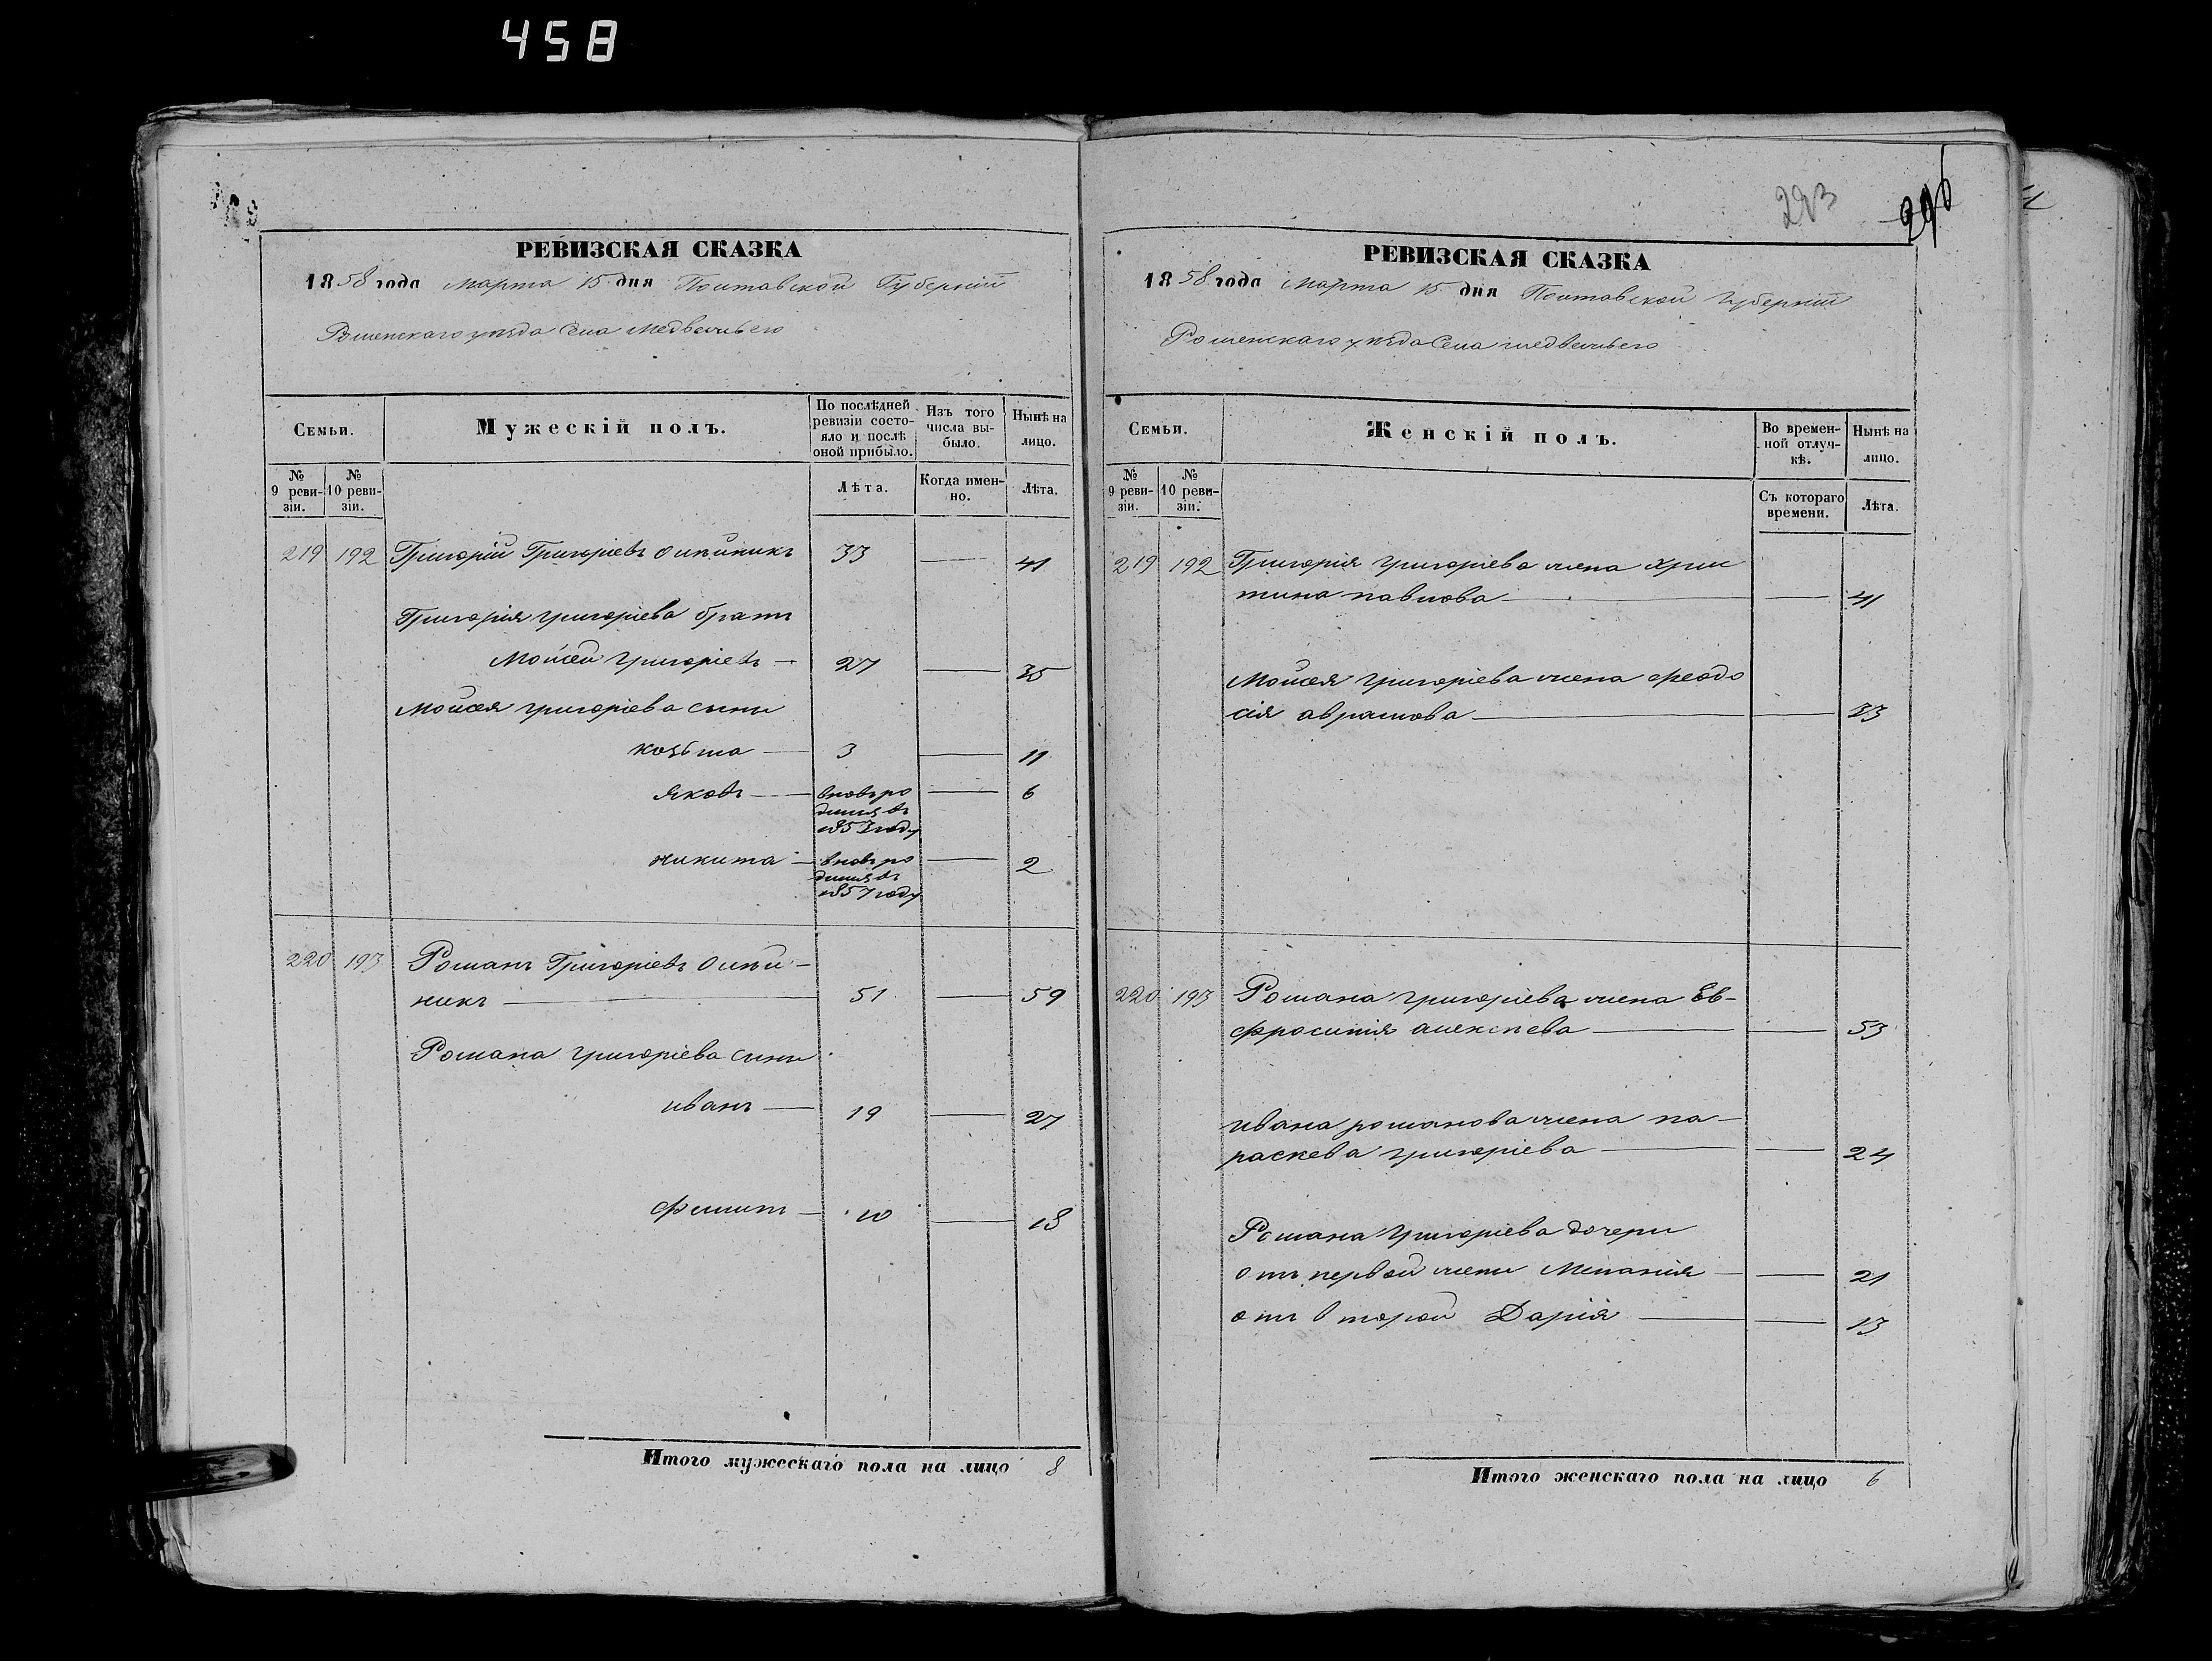 458
РЕВИЗСКАЯ СКАЗКА
1858 года Марта 15 дня Полтавской Губерніи
Роменскаго уѣзда Села Медвежьего
Семьи.
Мужескій полъ.
По послѣдней ревизіи состояло и послѣ оной прибыло.
Изъ того числа выбыло.
Нынѣ на лицо.
№ 9 ревизіи.
№ 10 ревизіи.
Лѣта.
Когда именно.
Лѣта.
219 192 Григорій Григоріевъ Олѣйникъ 33 — 41
Григорія григоріева братъ
Мойсей григоріевъ — 27 — 35
Мойсея григоріева сыны
козьма — 3 — 11
яковъ — вновь ро — 6
дился въ
1853 году
никита — вновь ро — 2
дился въ
1857 году
220 193 Романъ Григоріевъ Олѣй-
никъ — 51 — 59
Романа григоріева сыны
иванъ — 19 — 27
филипъ — 10 — 18
Итого мужескаго пола на лицо 8
293
296
РЕВИЗСКАЯ СКАЗКА
1858 года Марта 15 дня Полтавской Губерніи
Роменскаго уѣзда Села медвежьего
Семьи.
Женскій полъ.
Во временной отлучкѣ.
Нынѣ на лицо.
№ 9 ревизіи.
№ 10 ревизіи.
Съ котораго времени.
Лѣта.
219 192 Григорія григоріева жена хрис
тина павлова — — 41
Мойсея григоріева жена феодо
сія аврамова — — 33
220 193 Романа григоріева жена Ев-
фросинія алексѣева — — 53
ивана романова жена па-
раскева григоріева — — 24
Романа Григоріева дочери
отъ первой жены Меланія — — 21
отъ второй Дарія — — 13
Итого женскаго пола на лицо 6